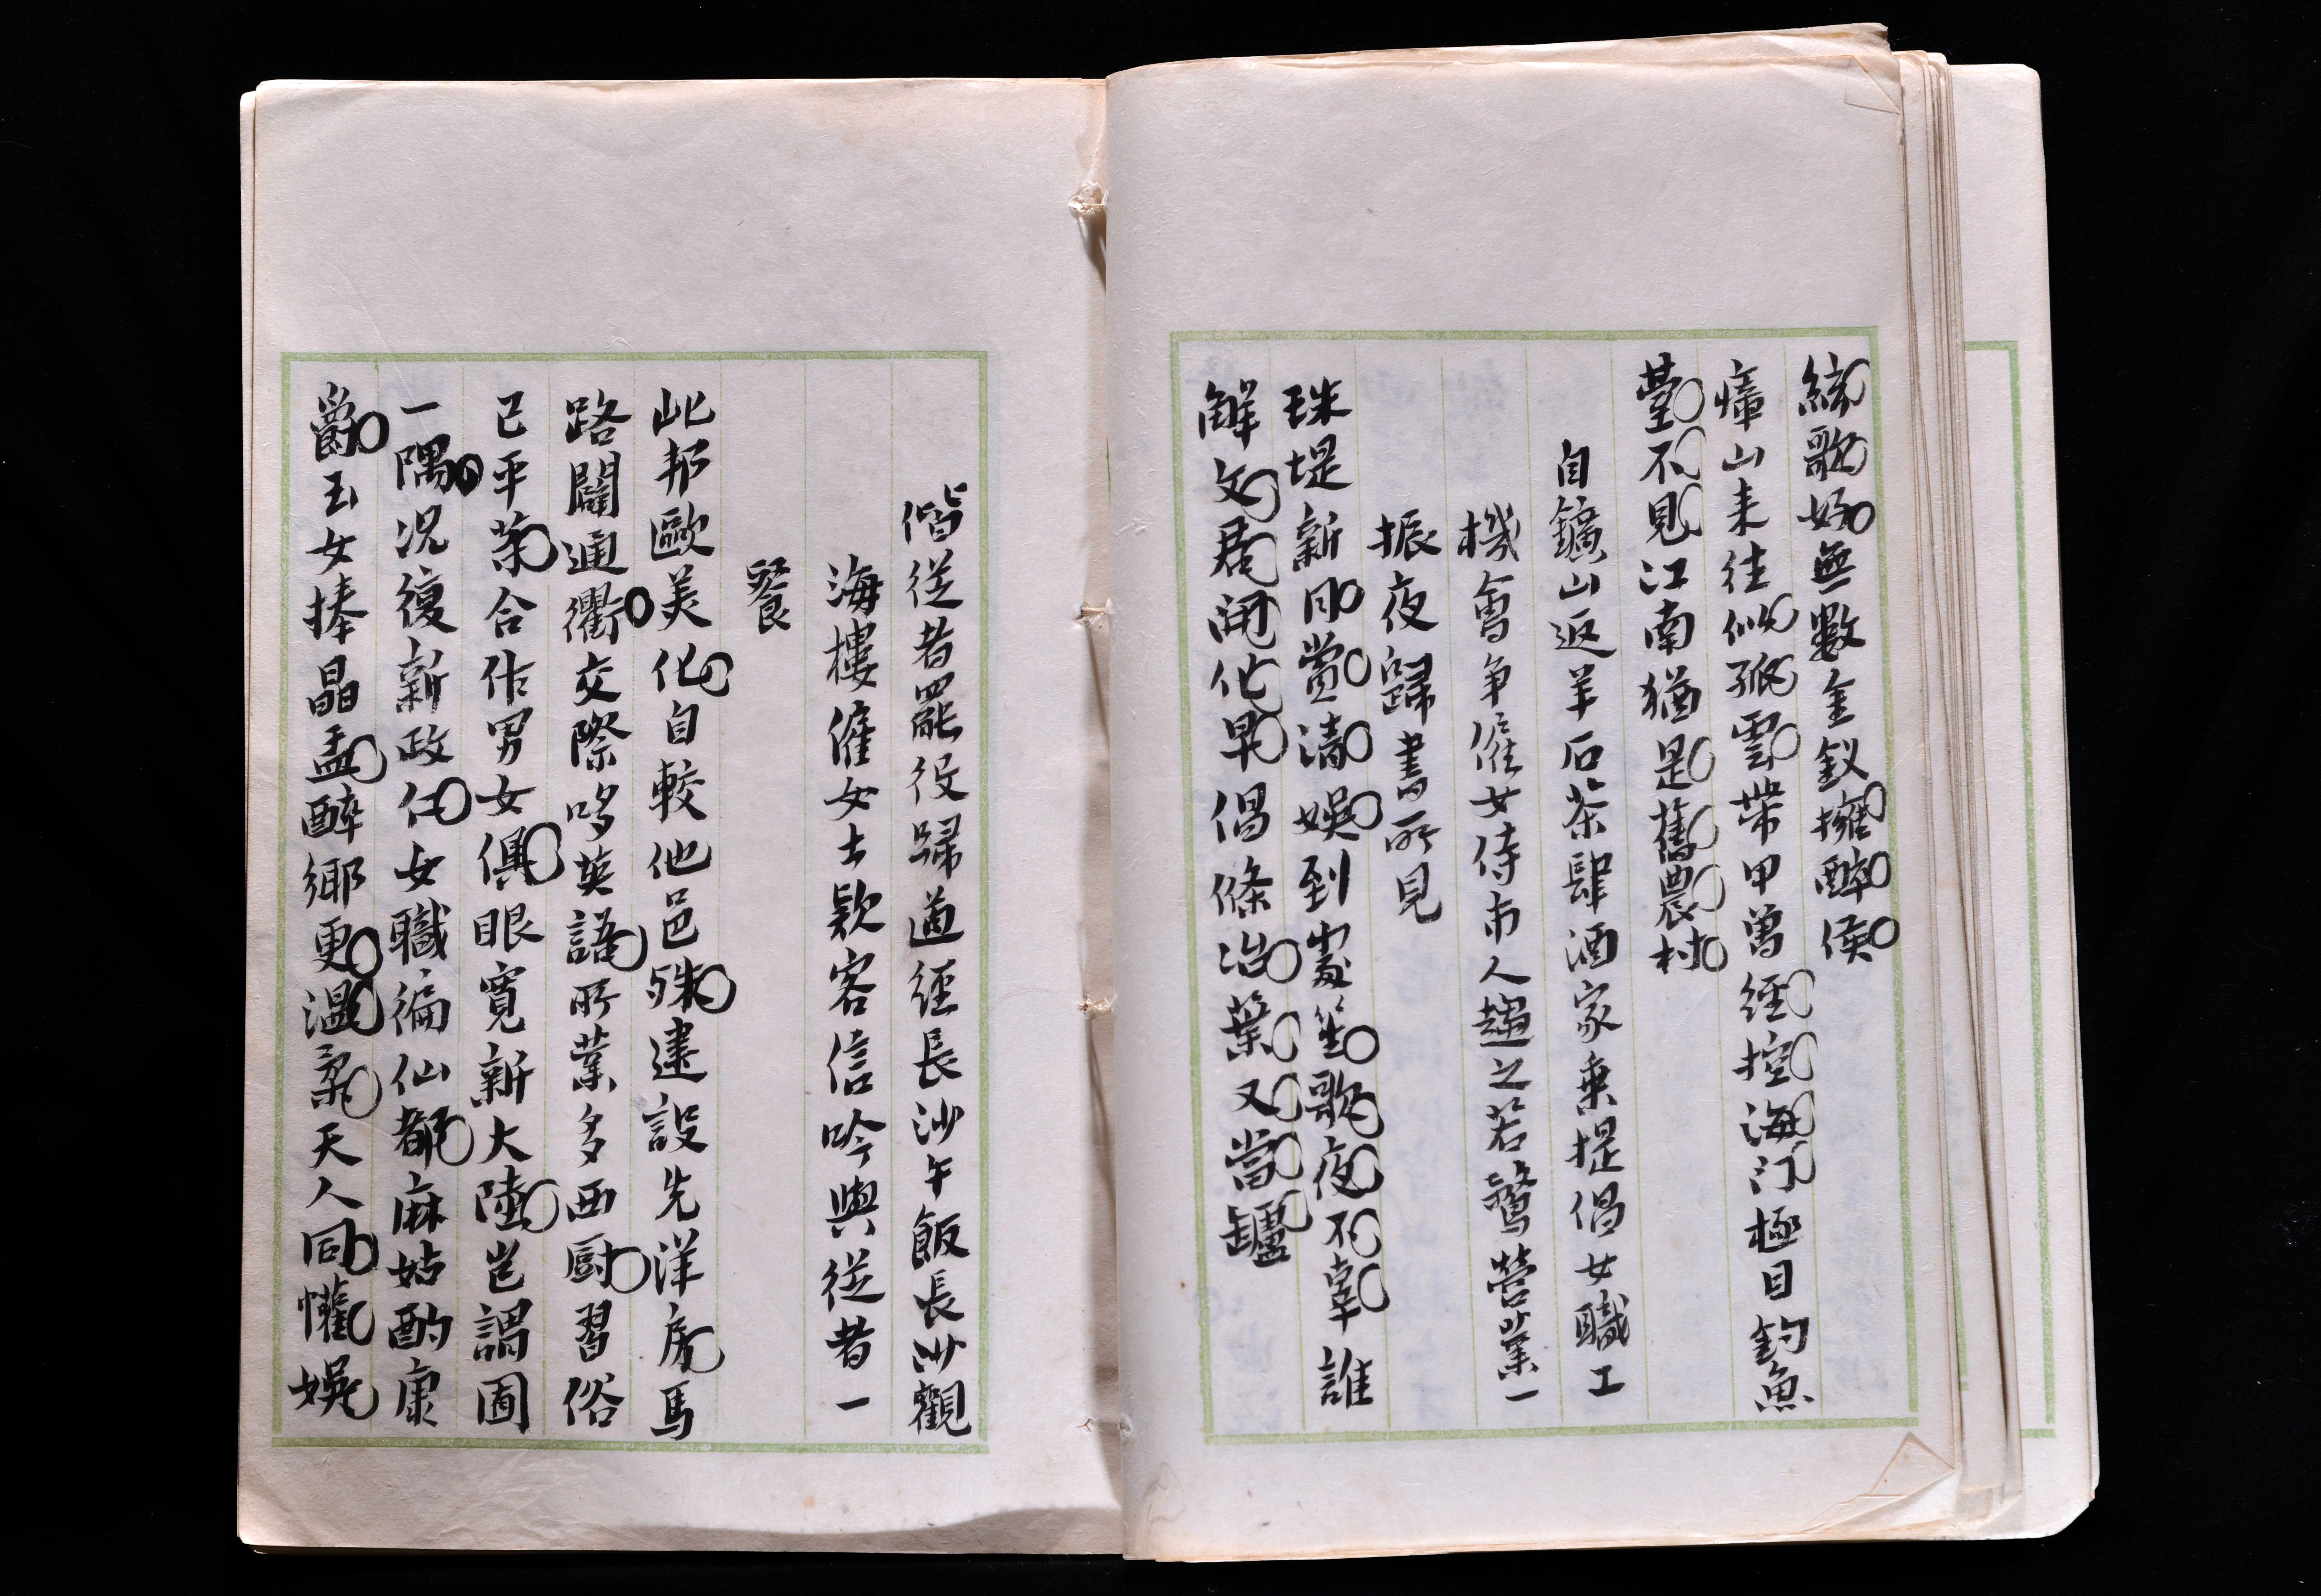 絃歌好無數金釵擁醉侯
瘴山來往似孤雲帶甲曾經控海門極目釣魚
臺不見江南猶是舊農村
自鑛山返羊石茶肆酒家乘提倡女職工
機會爭僱女侍市人趨之若鶩營業一
振夜歸書所見
珠堤新月賞清娛到處笙歌夜不辜誰
解文君開化早倡條冶葉又當罏
偕從者罷役歸道經長沙午飯長沙觀
海樓僱女士欵客信吟與從者一
餐
此邦歐美化自較他邑殊建設先洋房馬
路闢通衢交際哆英語所業多西厨習俗
已平等合作男女俱眼寬新大陸豈謂囿
一隅況復新政仁女職徧仙都麻姑酌康
爵玉女捧晶盂醉鄉更溫柔天人同懽娛